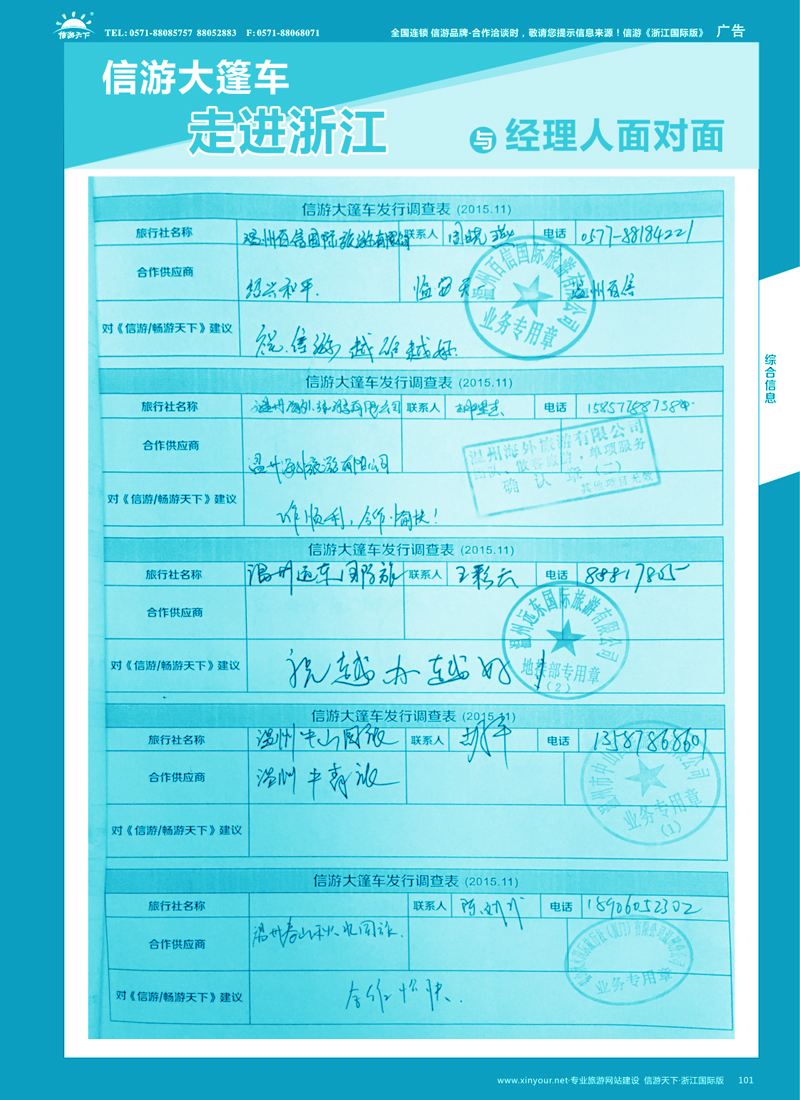 信游天下
TEL: 0571-88085757 88052883 F: 0571-88068071
全国连锁 信游品牌·合作洽谈时，敬请您提示信息来源！信游《浙江国际版》 广告
信游大篷车
走进浙江 与 经理人面对面
综合信息
信游大篷车发行调查表 (2015.11)
旅行社名称 温州百信国际旅游有限公司 联系人 电话 0577-88184221
合作供应商 绍兴和平. 温州百信
对《信游/畅游天下》建议 祝信游越办越好.
温州百信国际旅游有限公司
业务专用章
信游大篷车发行调查表 (2015.11)
旅行社名称 温州海外旅游有限公司 联系人 电话
合作供应商 温州海外旅游有限公司
对《信游/畅游天下》建议 顺利，合作愉快！
温州海外旅游有限公司
团队、散客旅游、单项服务
确认章（二）
其他项目无效
信游大篷车发行调查表 (2015.11)
旅行社名称 温州远东国际旅 联系人 王彩云 电话 88817805
合作供应商
对《信游/畅游天下》建议 祝越办越好！
温州远东国际旅游有限公司
地接部专用章
(2)
信游大篷车发行调查表 (2015.11)
旅行社名称 温州中山国旅 联系人 电话 13587868601
合作供应商 温州中青旅
对《信游/畅游天下》建议
业务专用章
(1)
信游大篷车发行调查表 (2015.11)
旅行社名称 联系人 电话 18906052302
合作供应商 温州春山秋水国旅.
对《信游/畅游天下》建议 合作愉快.
业务专用章
www.xinyour.net·专业旅游网站建设 信游天下·浙江国际版 101